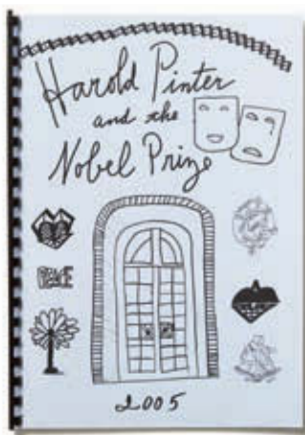 Harold Pinter
and the
Nobel Prize
PEACE
2005